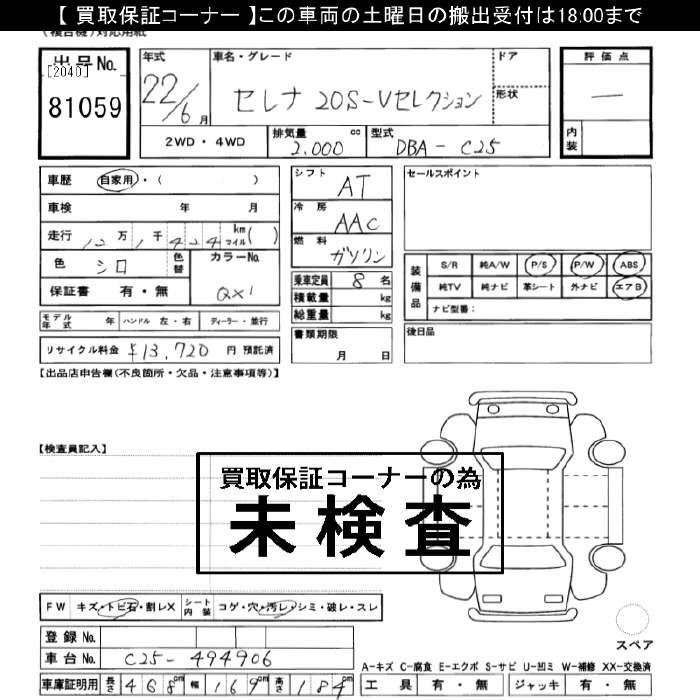 【 買取保証コーナー 】この車両の土曜日の搬出受付は18:00まで
(複合機)対応用紙
出品No. [2040] 81059
年式 22/6月
車名・グレード セレナ 20S-Vセレクション
ドア
形状
評価点 —
内装
2WD・4WD
排気量 cc 2.000
型式 DBA - C25
車歴 自家用・( )
車検 年 月
走行 12万1千424 km マイル( )
色 シロ 色替 カラーNo. QX1
保証書 有・無
モデル年式 年 ハンドル 左・右 ディーラー・並行
リサイクル料金 ¥13,720 円 預託済
シフト AT
冷房 AAC
燃料 ガソリン
乗車定員 8 名
積載量 kg
総重量 kg
書類期限
月 日
セールスポイント
装備品
S/R 純A/W P/S P/W ABS
純TV 純ナビ 革シート 外ナビ エアB
ナビ型番:
後日品
【出品店申告欄(不良箇所・欠品・注意事項等)】
【検査員記入】
買取保証コーナーの為
未検査
FW キズ・トビ石・割レX シート内装 コゲ・穴・汚レ・シミ・破レ・スレ
登録No.
車台No. C25-494906
車庫証明用 長さ 468cm 幅 169cm 高さ 184cm
スペア
A-キズ C-腐食 E-エクボ S-サビ U-凹ミ W-補修 XX-交換済
工具 有・無 ジャッキ 有・無